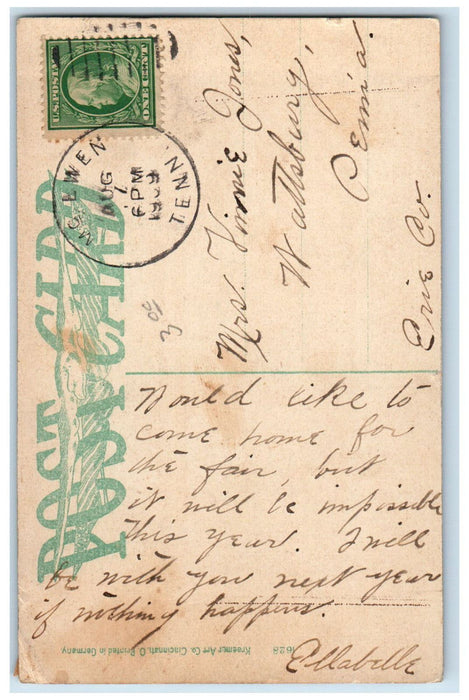 U.S. POSTAGE
ONE CENT
MCEWEN
AUG
7
6 PM
1909
TENN
POST CARD
Mrs. Jones,
Wattsburg,
Penn'a.
Erie Co.
Would like to
come home for
the fair, but
it will be impossible
this year. I will
be with you next year
if nothing happens.
Ellabelle
1628 Kraemer Art Co. Cincinnati, O. Printed in Germany